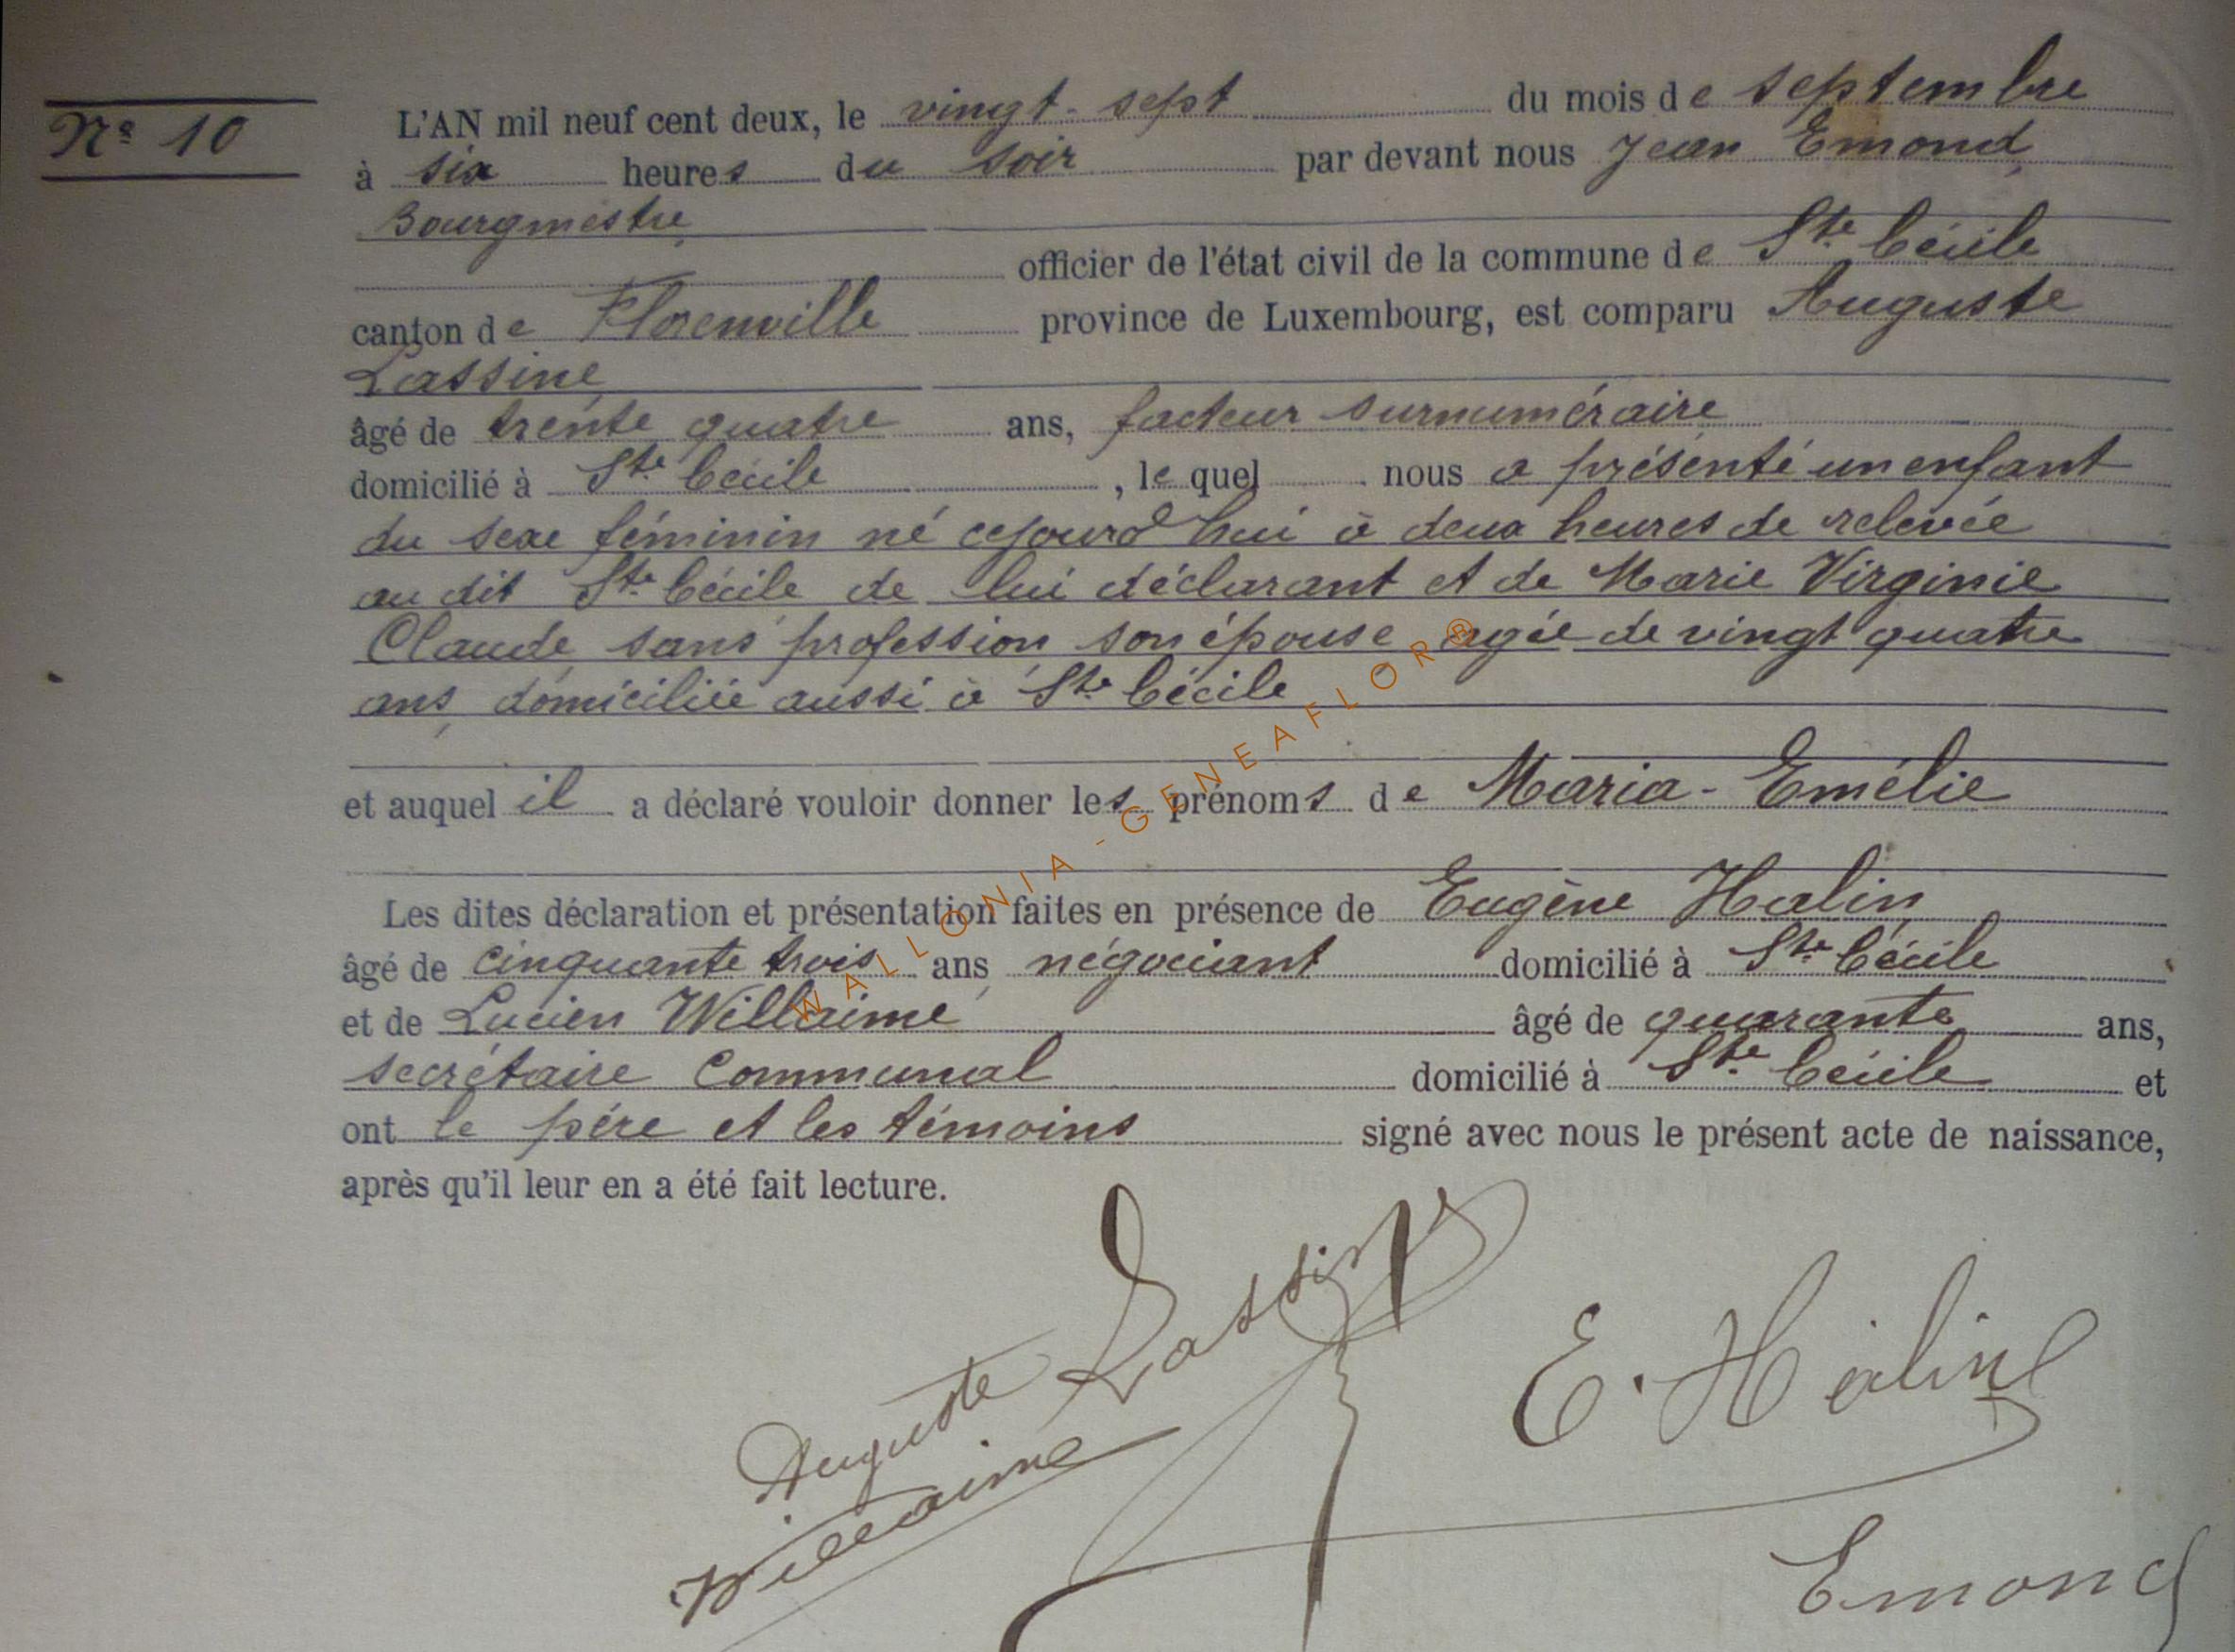 Nº 10
L'AN mil neuf cent deux, le vingt-sept du mois de septembre
à six heures du soir par devant nous Jean Emond,
Bourgmestre
officier de l'état civil de la commune de Ste Cécile
canton de Florenville province de Luxembourg, est comparu Auguste
Lassine
âgé de trente quatre ans, facteur surnuméraire
domicilié à Ste Cécile , lequel nous a présenté un enfant
du sexe féminin né cejourd'hui à deux heures de relevée
au dit Ste Cécile de lui déclarant et de Marie Virginie
Claude, sans profession, son épouse, agée de vingt quatre
ans, domiciliée aussi à Ste Cécile
et auquel il a déclaré vouloir donner les prénoms de Maria-Emélie
Les dites déclaration et présentation faites en présence de Eugène Halin,
âgé de cinquante trois ans, négociant domicilié à Ste Cécile
et de Lucien Willaime âgé de quarante ans,
secrétaire communal domicilié à Ste Cécile et
ont le père et les témoins signé avec nous le présent acte de naissance,
après qu'il leur en a été fait lecture.
Auguste Lassine
E. Halin
Willaime
Emond
WALLONIA-GENEAFLOR®